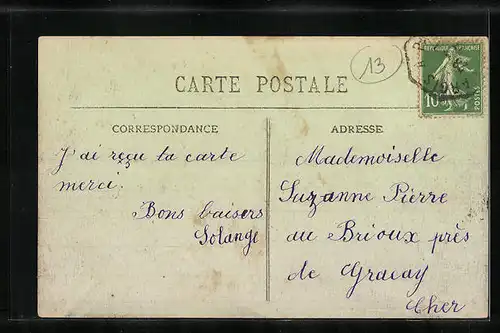 13
CARTE POSTALE
REPUBLIQUE FRANÇAISE
10
POSTES
CORRESPONDANCE
J'ai reçu ta carte
merci.
Bons baisers
Solange
ADRESSE
Mademoiselle
Suzanne Pierre
au Brioux près
de Graçay
Cher